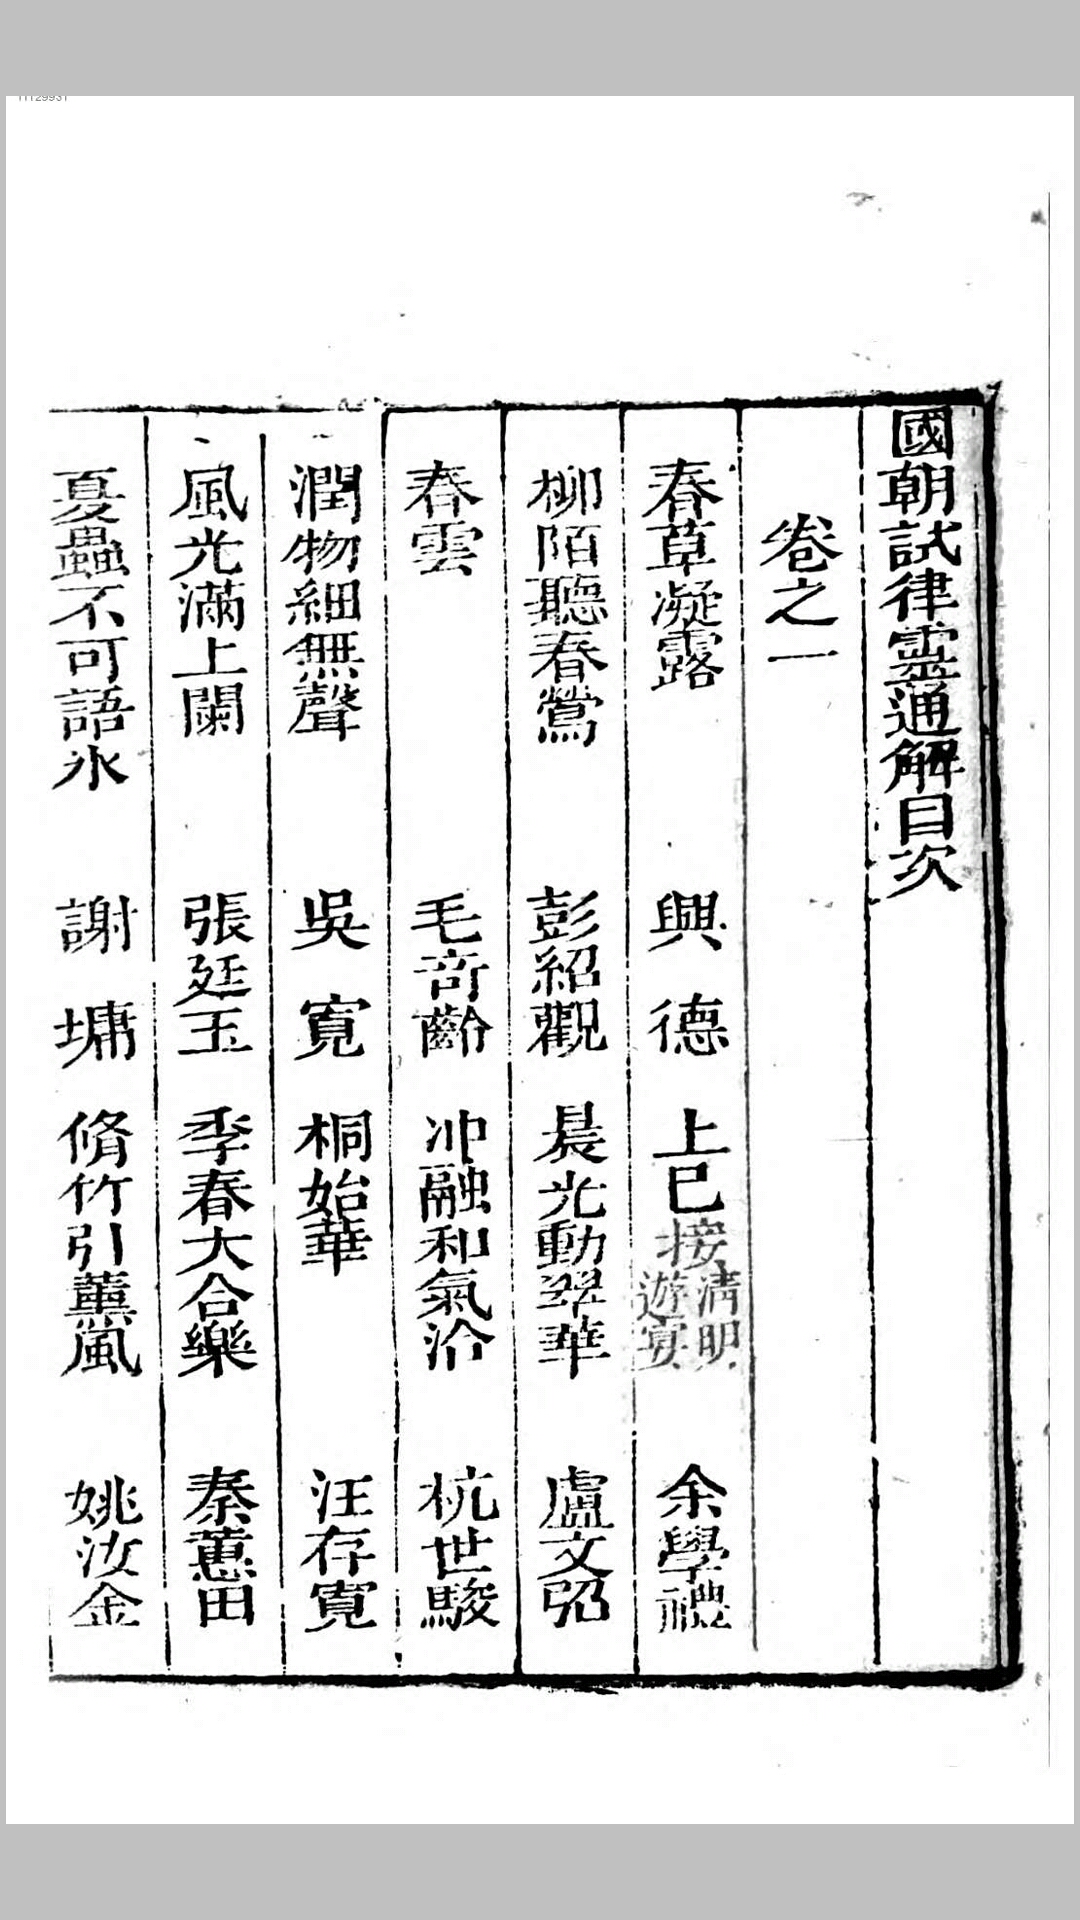 國朝試律靈通解目次
卷之一
春草凝露 興德 上巳接清明遊宴 余學禮
柳陌聽春鶯 彭紹觀 晨光動翠華 盧文弨
春雲 毛奇齡 冲融和氣洽 杭世駿
潤物細無聲 吳寬 桐始華 汪存寬
風光滿上闌 張廷玉 季春大合樂 秦蕙田
夏蟲不可語氷 謝墉 脩竹引薰風 姚汝金